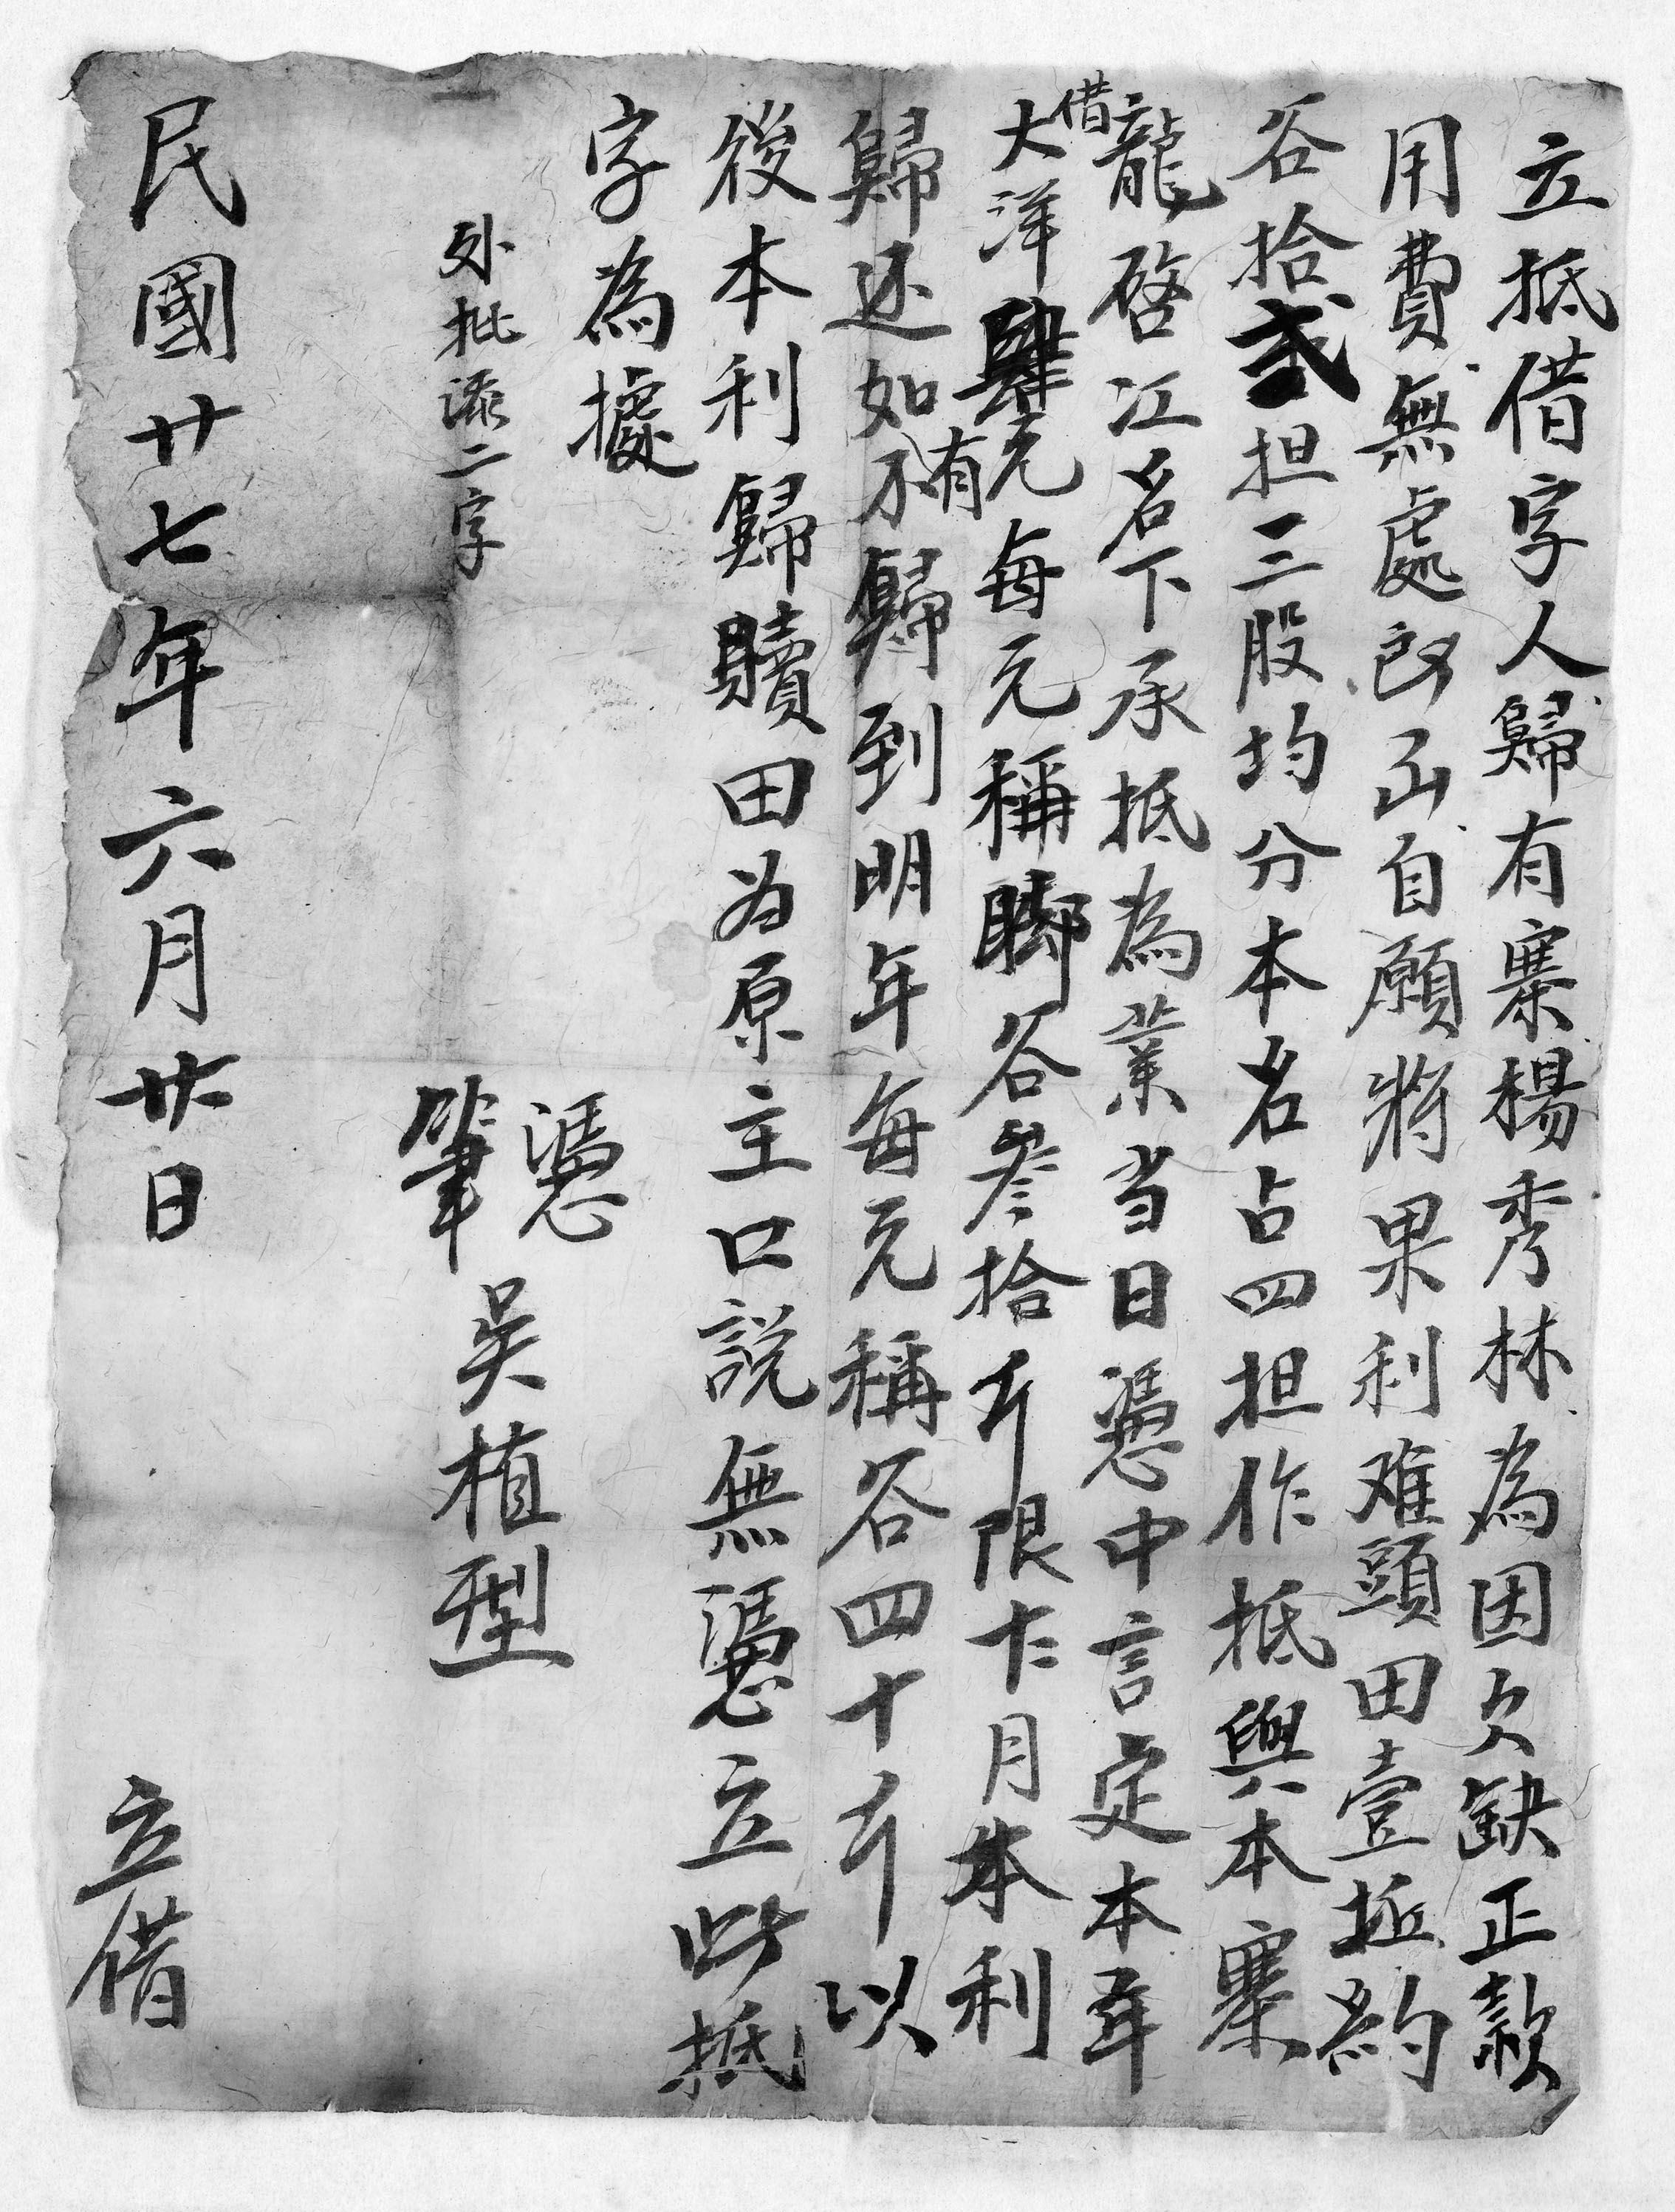 立抵借字人歸有寨楊秀林為因欠缺正款
用費無處出自願將果利难頭田壹坵約
谷拾貳担三股均分本名占四担作抵與本寨
龍啓江名下承抵為業当日憑中言定本年
借大洋肆元每元稱脚谷叁拾斤限十月本利
歸还如有不歸到明年每元稱谷四十斤以
後本利歸贖田为原主口説無憑立此抵
字為據
外批添二字
憑
筆 吴植型
民國廿七年六月廿日 立借